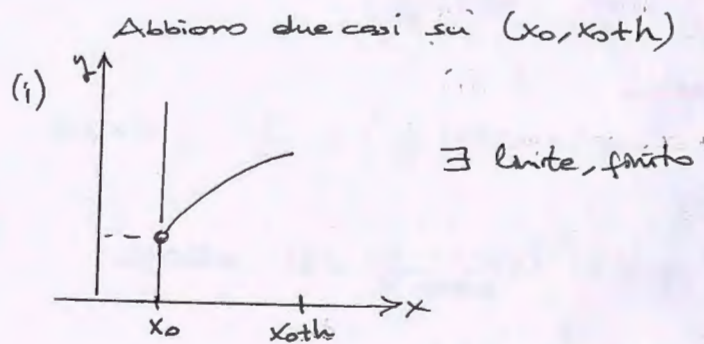 Abbiamo due casi su (x₀, x₀+h)
(i)
y
∃ limite, finito
x
x₀
x₀+h